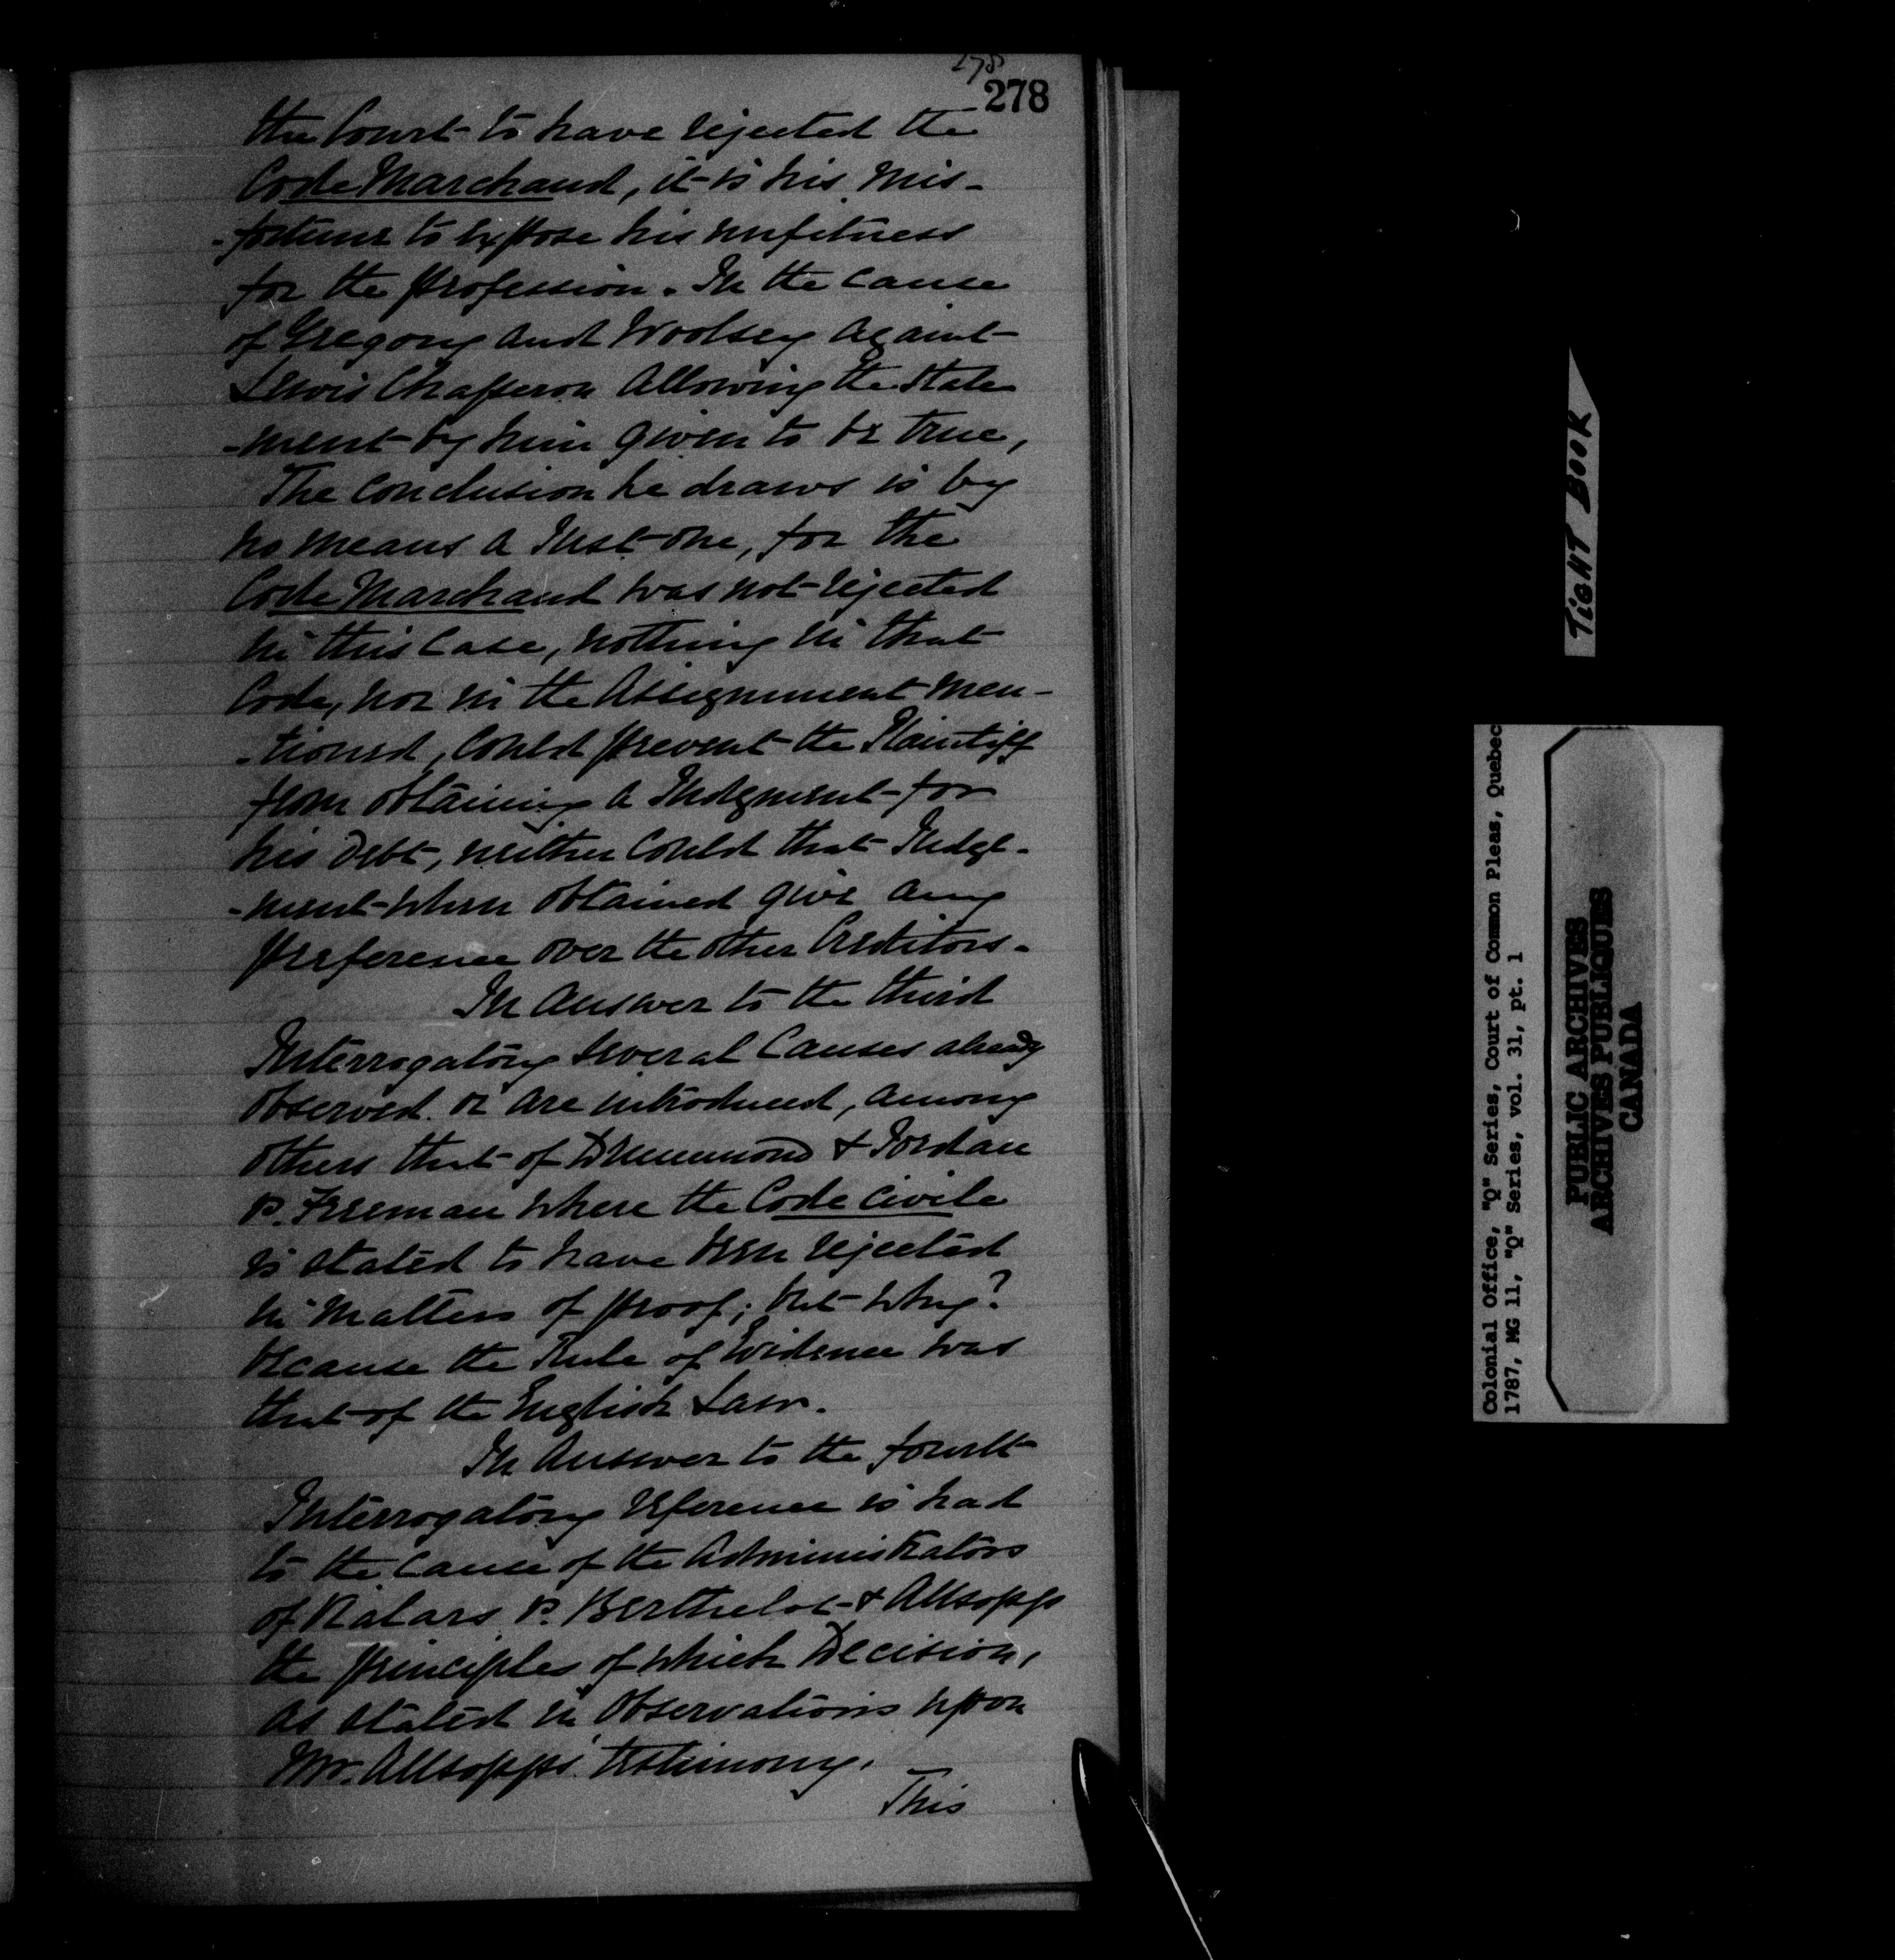 278
278
the Court to have rejected the
Code Marchand, it is his mis-
-fortune to expose his unfitness
for the profession. In the cause
of Gregory and Woolsey against
Lewis Chaperon allowing the state
-ment by him given to be true,
The conclusion he draws is by
no means a Just one, for the
Code Marchand was not rejected
in this Case, nothing in that
Code, nor in the Assignment men-
-tioned, Could prevent the Plaintiff
from obtaining a Judgment for
his Debt, neither Could that Judge-
-ment when obtained give any
preference over the other Creditors.
In answer to the third
Interrogatory several Causes already
observed on are introduced, among
others that of Drummond & Jordan
v. Freeman where the Code Civile
is stated to have been rejected
in matters of proof; but why?
because the Rule of Evidence was
that of the English Law.
In Answer to the fourth
Interrogatory reference is had
to the cause of the Administrators
of v. Berthelot & Allsopp
the principles of which Decision,
as stated in Observations upon
Mr. Allsopps' testimony.
This
TIGHT BOOK
Colonial Office, "Q" Series, Court of Common Pleas, Quebec
1787, MG 11, "Q" Series, vol. 31, pt. 1
PUBLIC ARCHIVES
ARCHIVES PUBLIQUES
CANADA